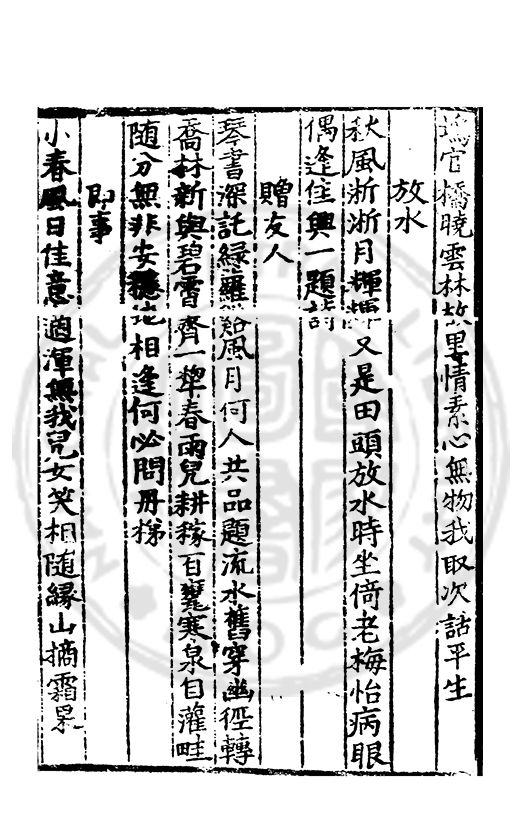 官橋曉雲林故里情素心無物我取次話平生
放水
秋風淅淅月輝輝又是田頭放水時坐倚老梅怡病眼
偶逢佳興一題詩
贈友人
琴書深託綠蘿谿風月何人共品題流水舊穿幽徑轉
喬林新與碧霄齊一犂春雨兒耕稼百甕寒泉自灌畦
隨分無非安穩地相逢何必問丹梯
即事
小春風日佳意適渾無我兒女笑相随緣山摘霜果